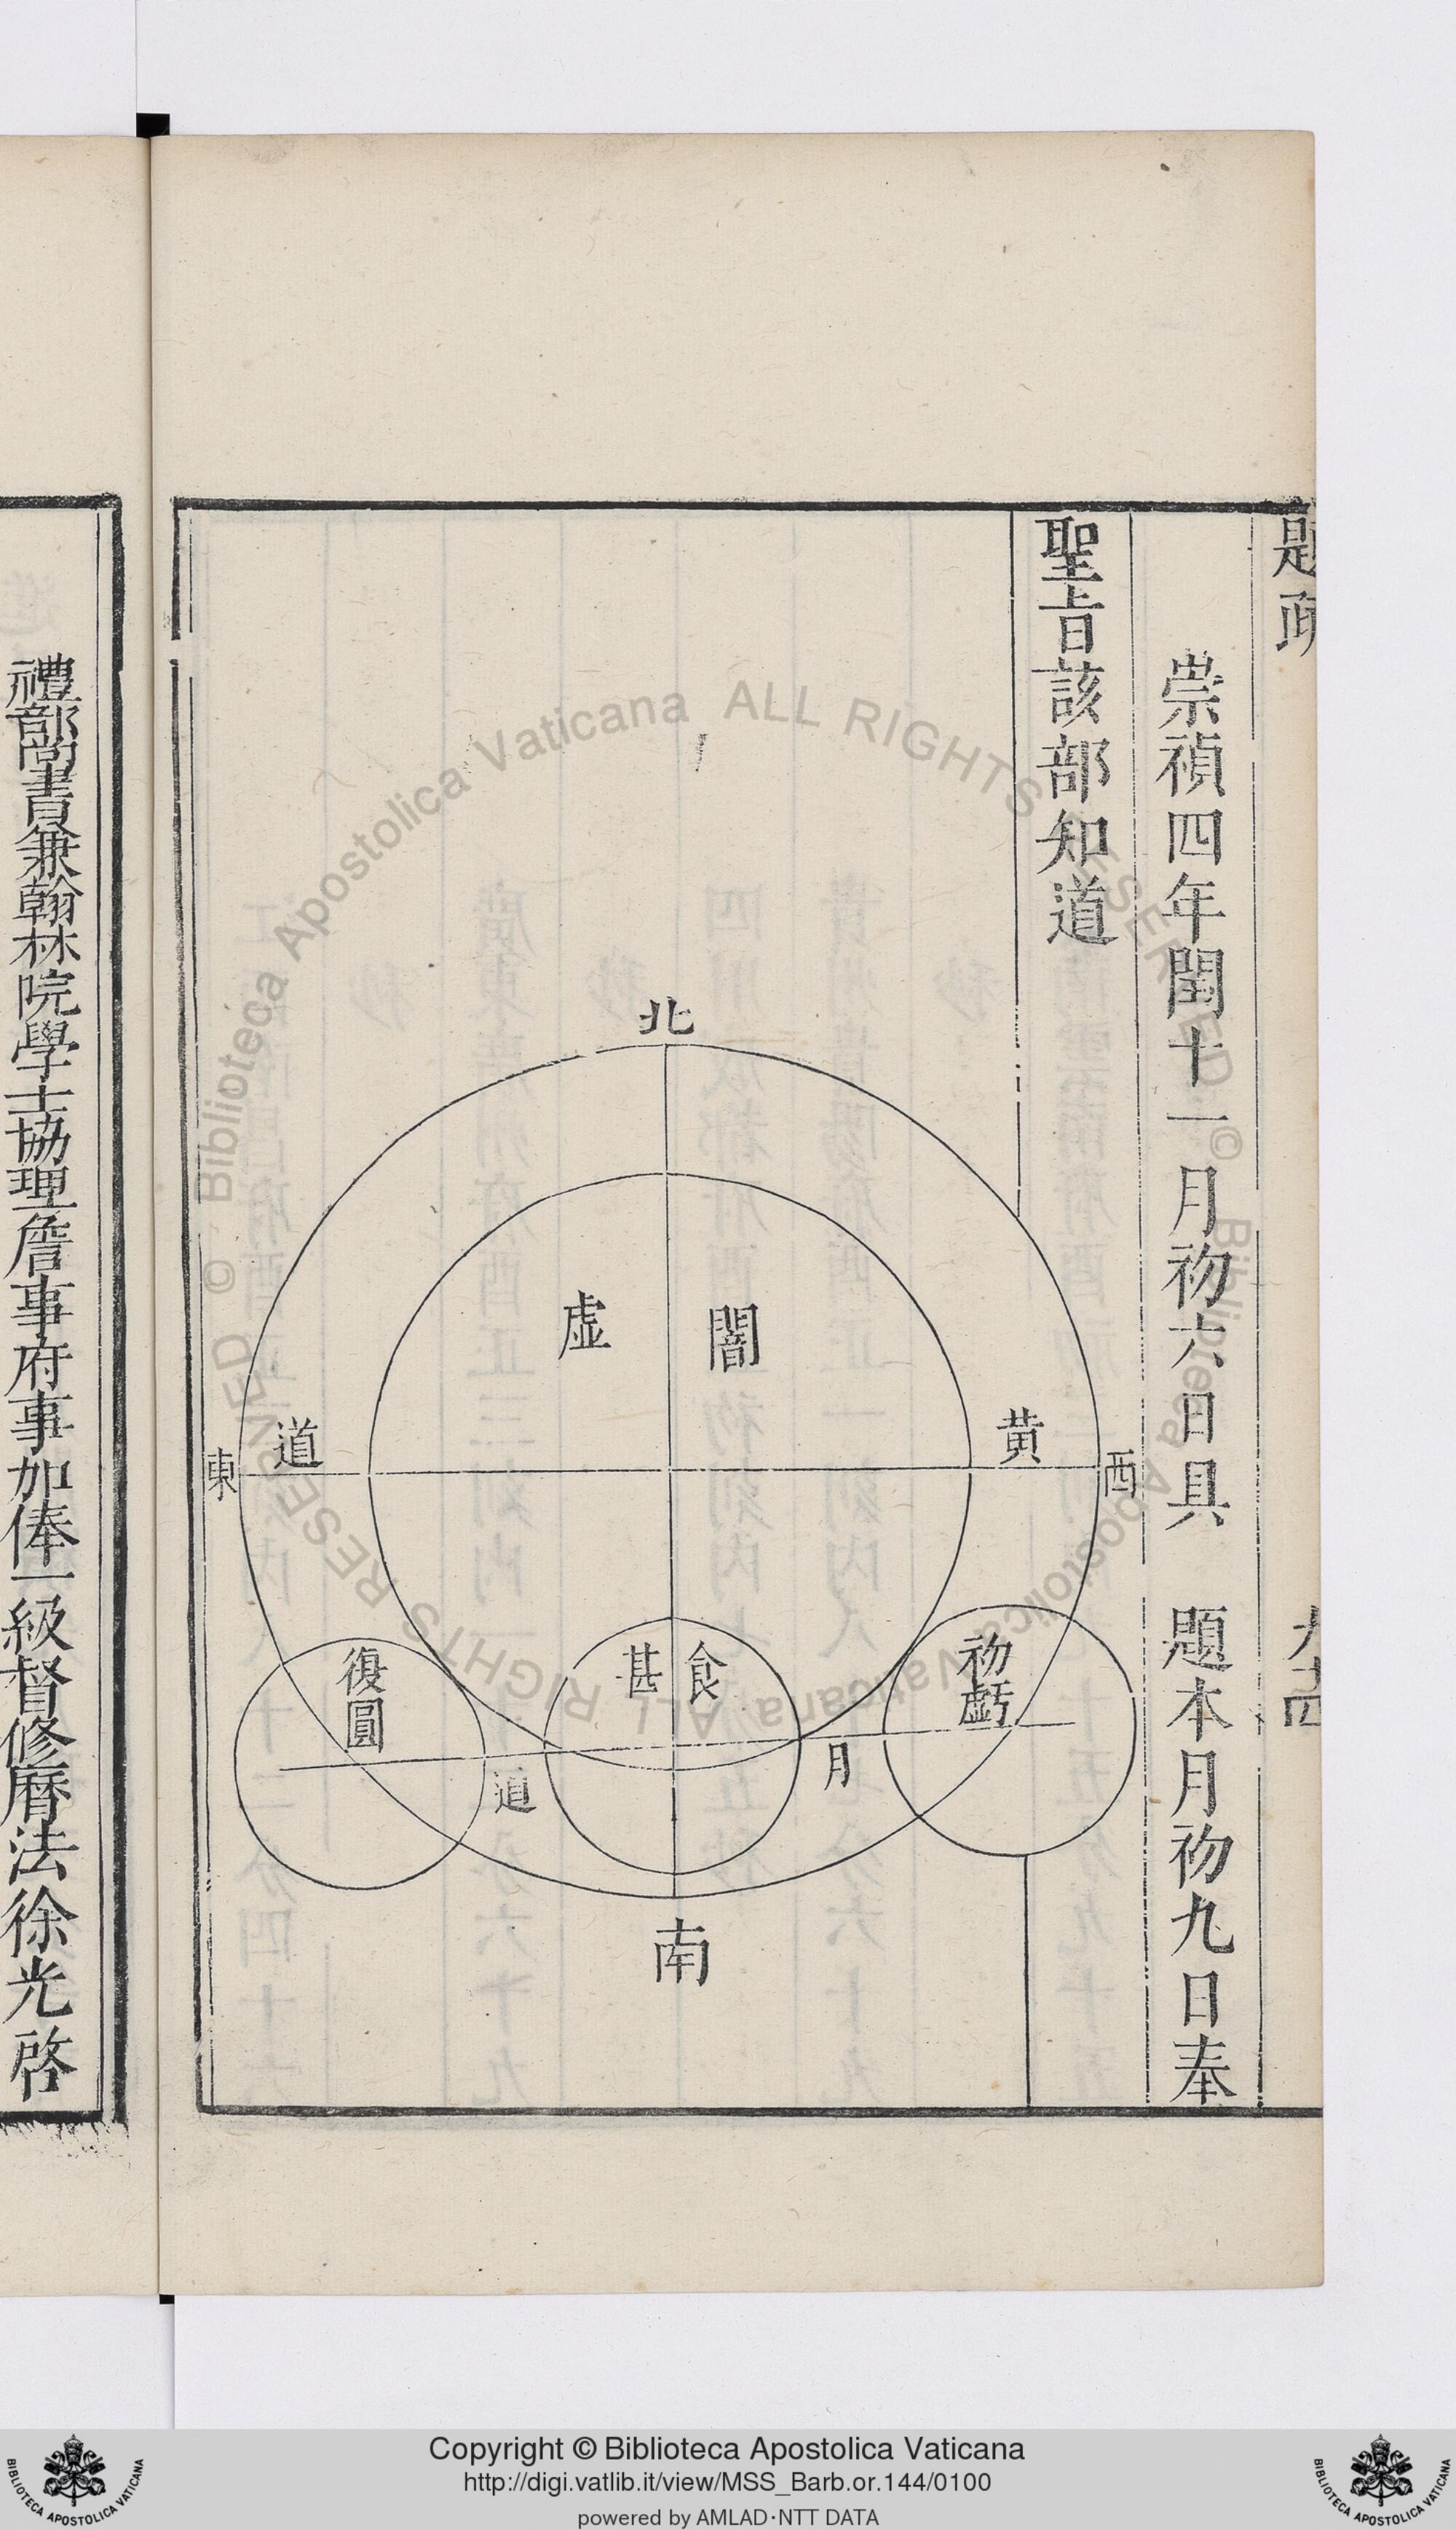 題疏
九十四
崇禎四年閏十一月初六日具　題本月初九日奉
聖旨該部知道
北
闇虛
黃道
西
東
初虧
食甚
復圓
月道
南
禮部尚書兼翰林院學士協理詹事府事加俸一級督修曆法徐光啓
© Biblioteca Apostolica Vaticana ALL RIGHTS RESERVED © Biblioteca Apostolica Vaticana ALL RIGHTS RESERVED
Copyright © Biblioteca Apostolica Vaticana
http://digi.vatlib.it/view/MSS_Barb.or.144/0100
powered by AMLAD·NTT DATA
BIBLIOTECA APOSTOLICA VATICANA
BIBLIOTECA APOSTOLICA VATICANA